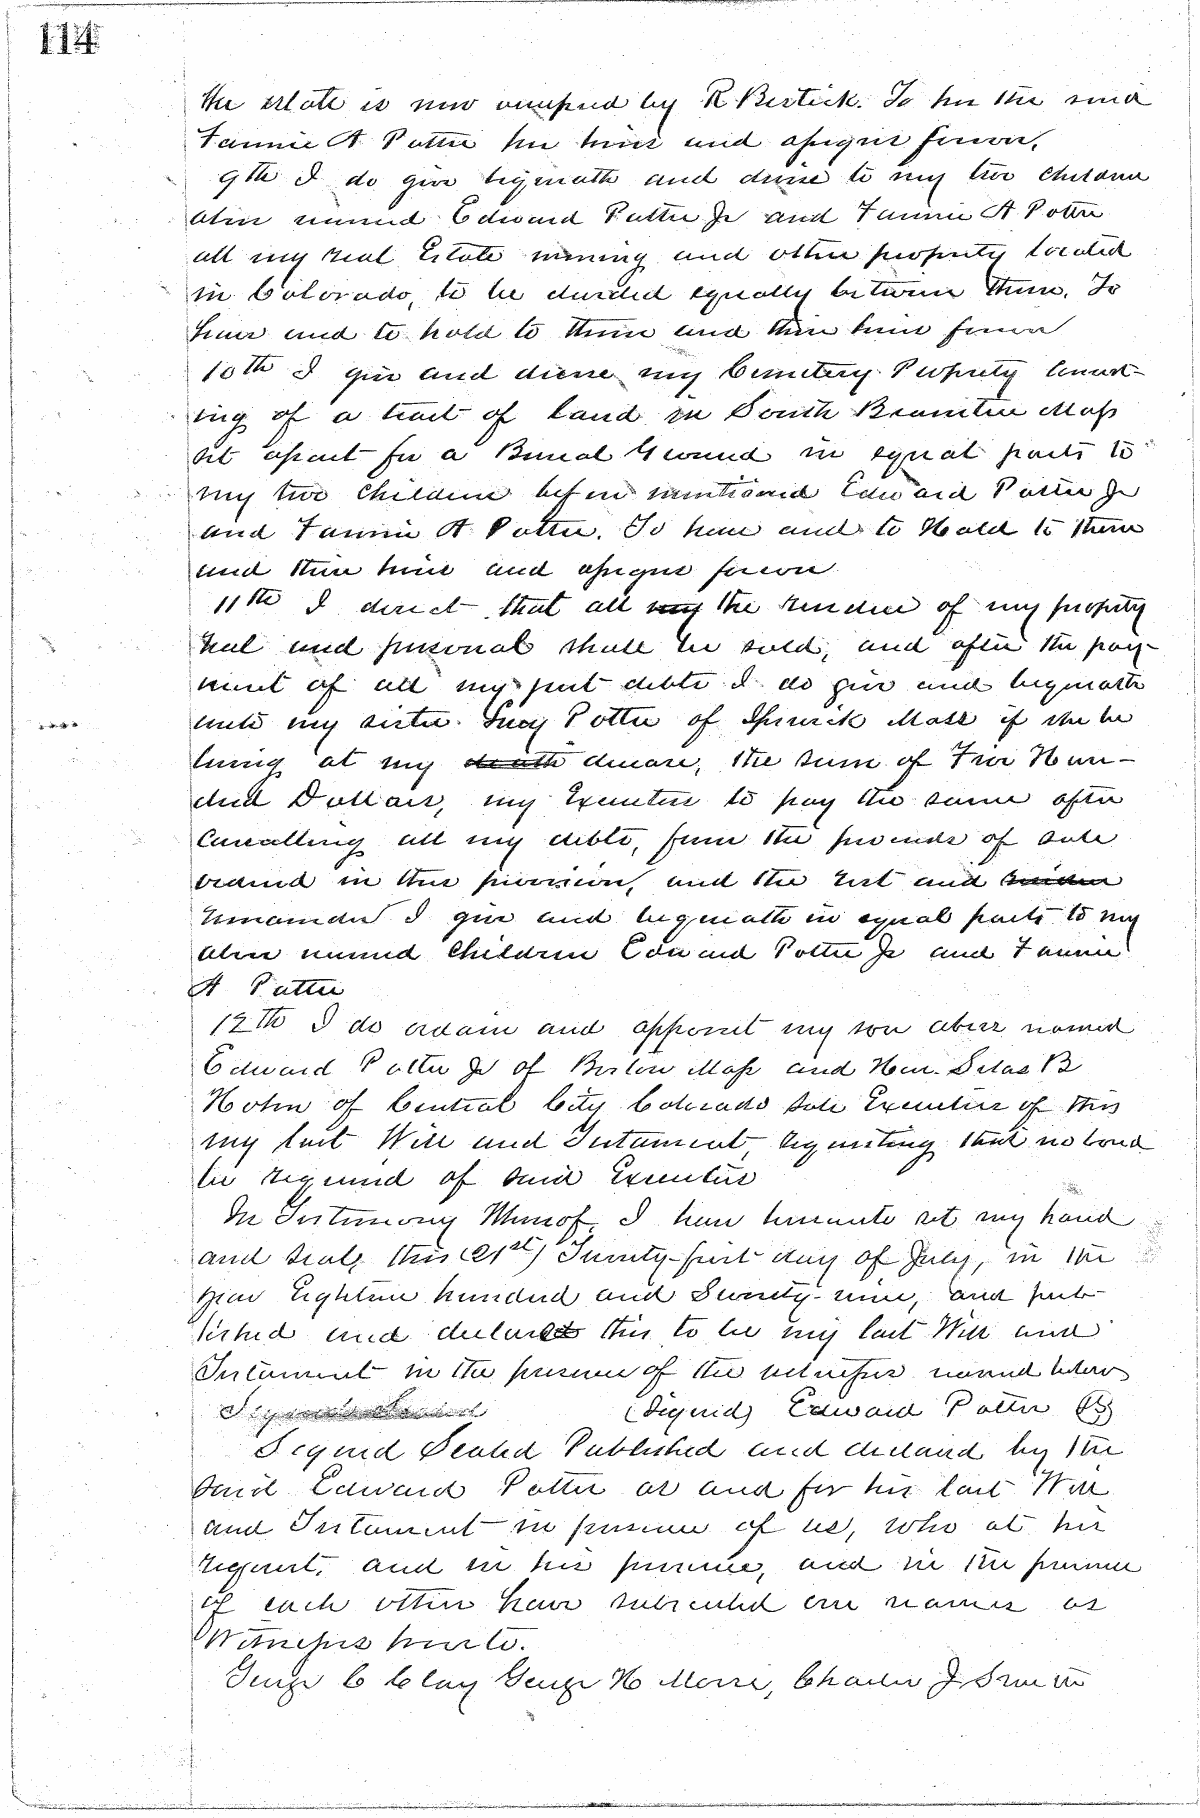 114
the estate is now occupied by R Bestick. To her the said
Fannie A Potter her heirs and assigns forever.
9th I do give beqeath and devise to my two children
above named Edward Potter Jr and Fannie A Potter
all my real Estate mining and other property located
in Colorado, to be divided equally between them. To
have and to hold to them and their heirs forever
10th I give and devise my Cemetery Property consist-
ing of a tract of land in South Braintree Mass
set apart for a Burial Ground in equal parts to
my two children before mentioned Edward Potter Jr
and Fannie A Potter. To have and to Hold to them
and their heirs and assigns forever
11th I direct that all my the residue of my property
real and personal shall be sold, and after the pay-
ment of all my just debts I do give and bequeath
unto my sister Lucy Potter of Ipswich Mass if she be
living at my death decease, the sum of Five Hun-
dred Dollars, my Executors to pay the same after
Cancelling all my debts, from the proceeds of sale
ordered in this provision, and the rest and residue
remainder I give and bequeath in equal parts to my
above named children Edward Potter Jr and Fannie
A Potter
12th I do ordain and appoint my son above named
Edward Potter Jr of Boston Mass and Hon. Silas B
Hahn of Central City Colorado sole Executors of this
my last Will and Testament, requesting that no bond
be required of said Executors
In Testimony Whereof, I have hereunto set my hand
and seal, this (21st) Twenty-first day of July, in the
year Eighteen hundred and Seventy-nine, and pub-
lished and declared this to be my last Will and
Testament in the presence of the witnesses named below
Signed Sealed (Signed) Edward Potter (LS)
Signed Sealed Published and declared by the
said Edward Potter as and for his last Will
and Testament in presence of us, who at his
request, and in his presence, and in the presence
of each other have subscribed our names as
Witnesses hereto.
George C Clay George H Morse, Charles J Smith